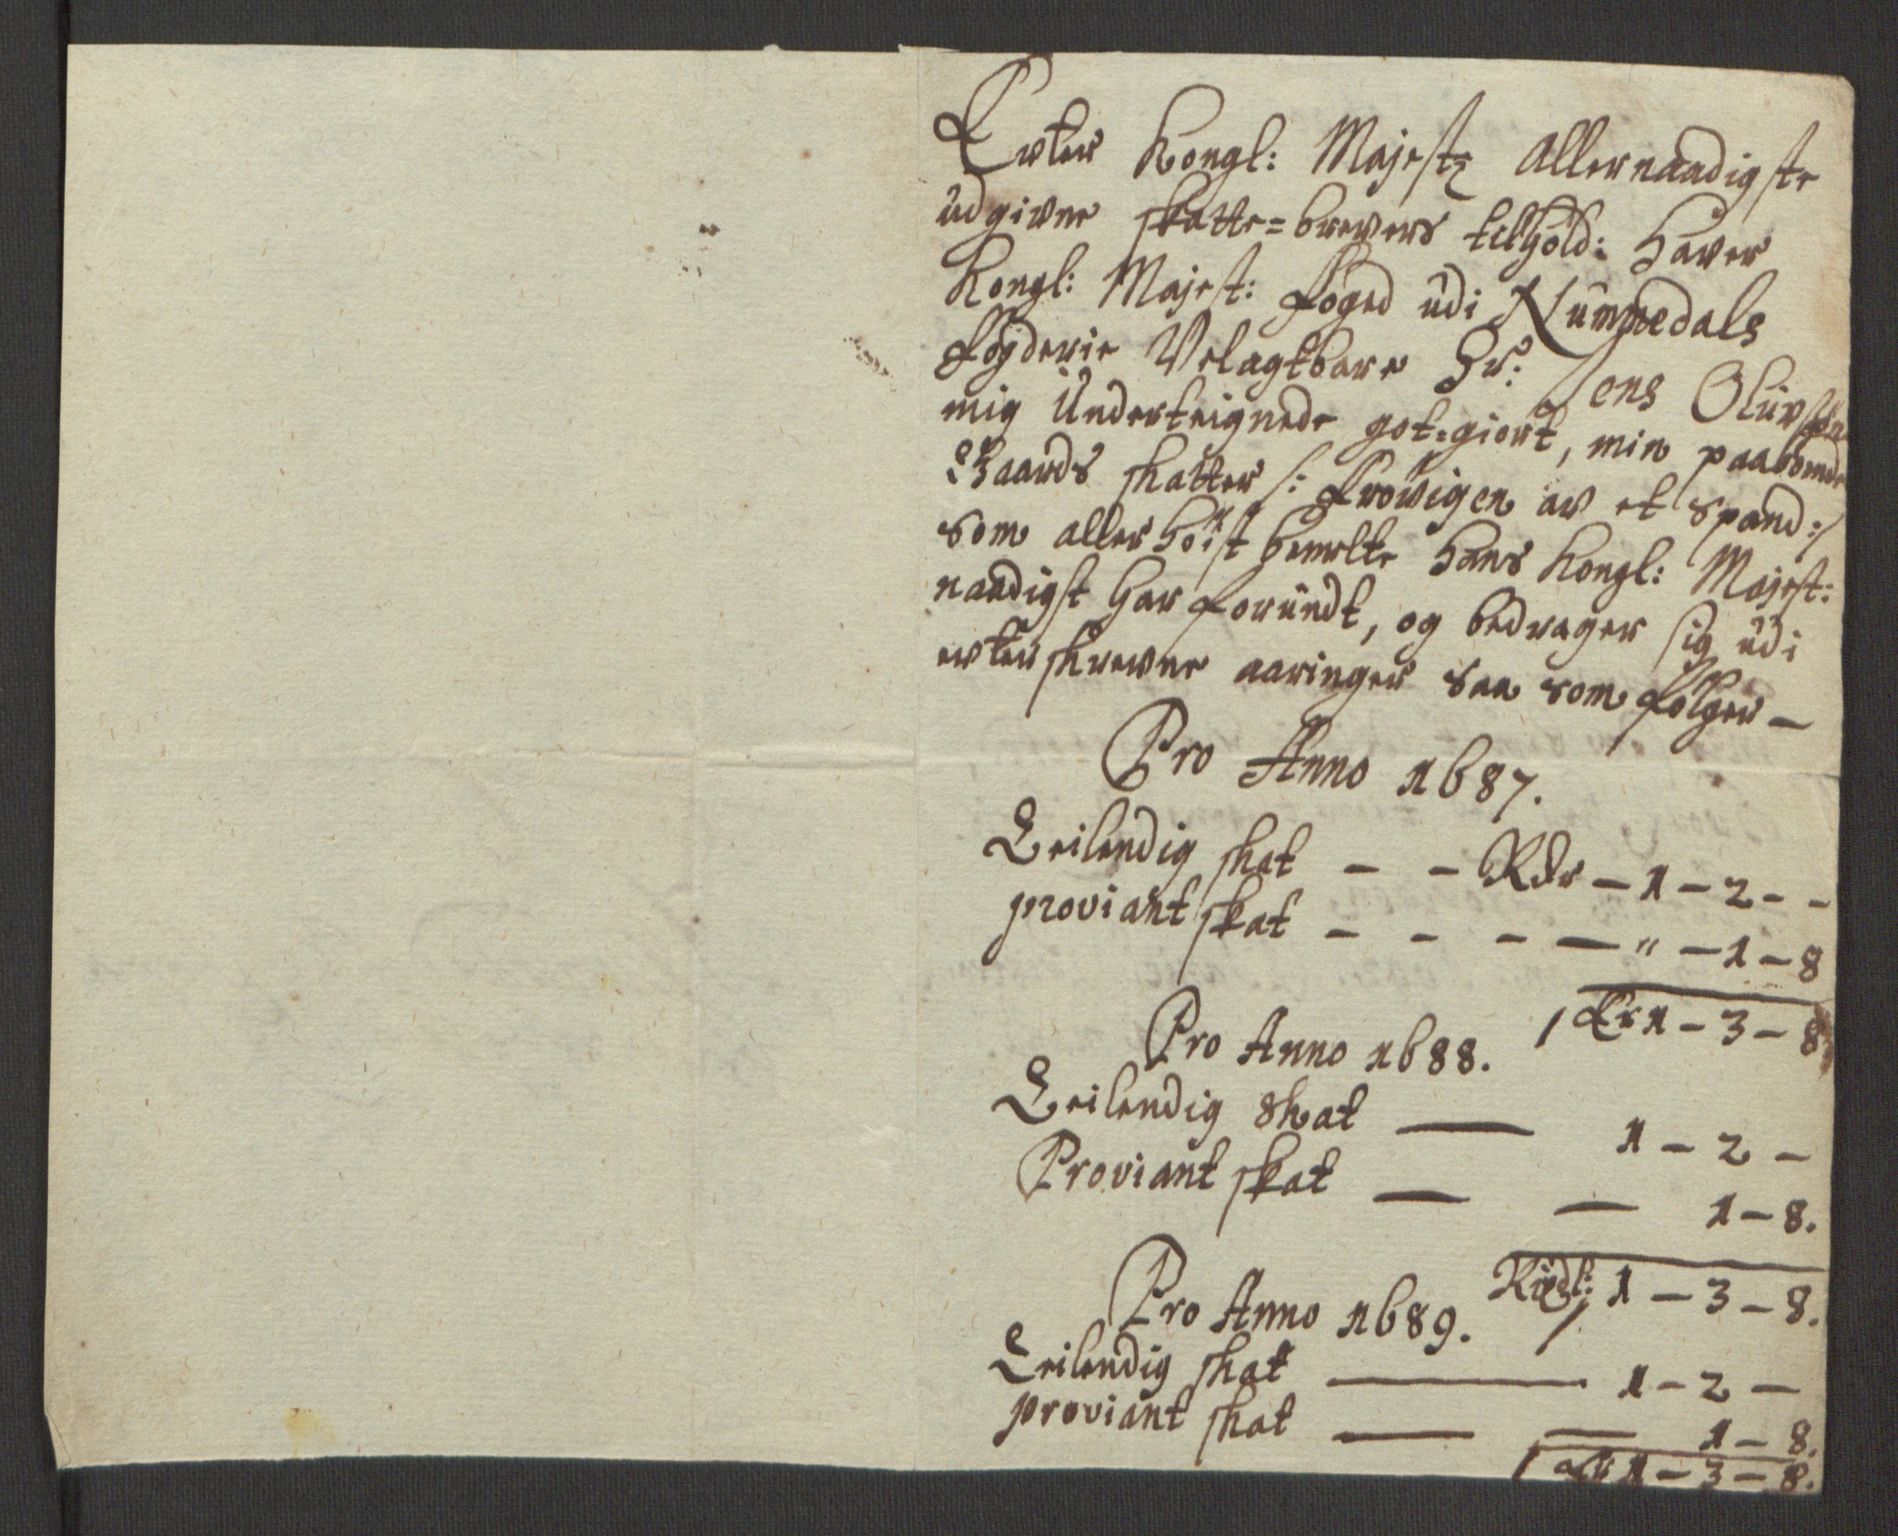 Evter Kongl: Majestz Allernaadigste
udgivne skatte=brevers tilhold: Haver
Kongl: Majest: foged udi Nummedals
fogderie Velagtbare Hr: Jens Oluvsøn
mig Underteignede got=giort, min paaboende
Gaards skatter /: Frövigen av et Spand :/
som allerhöist bemelte Hans Kongl: Majest:
naadigst har forundt, og bedrager sig udi
evterskrevne aaringer saa som fölger –
Pro Anno 1687.
Leilendig skat – – Rdr – 1 – 2 – –
proviant skat – – – — " – 1 – 8
Er 1 – 3 – 8
Pro Anno 1688.
Leilendig skat — 1 – 2 –
Proviant skat — — 1 – 8.
Rixdl: 1 – 3 – 8.
Pro Anno 1689.
Leilendig skat — 1 – 2 –
proviant skat — — 1 – 8.
1 – 3 – 8.